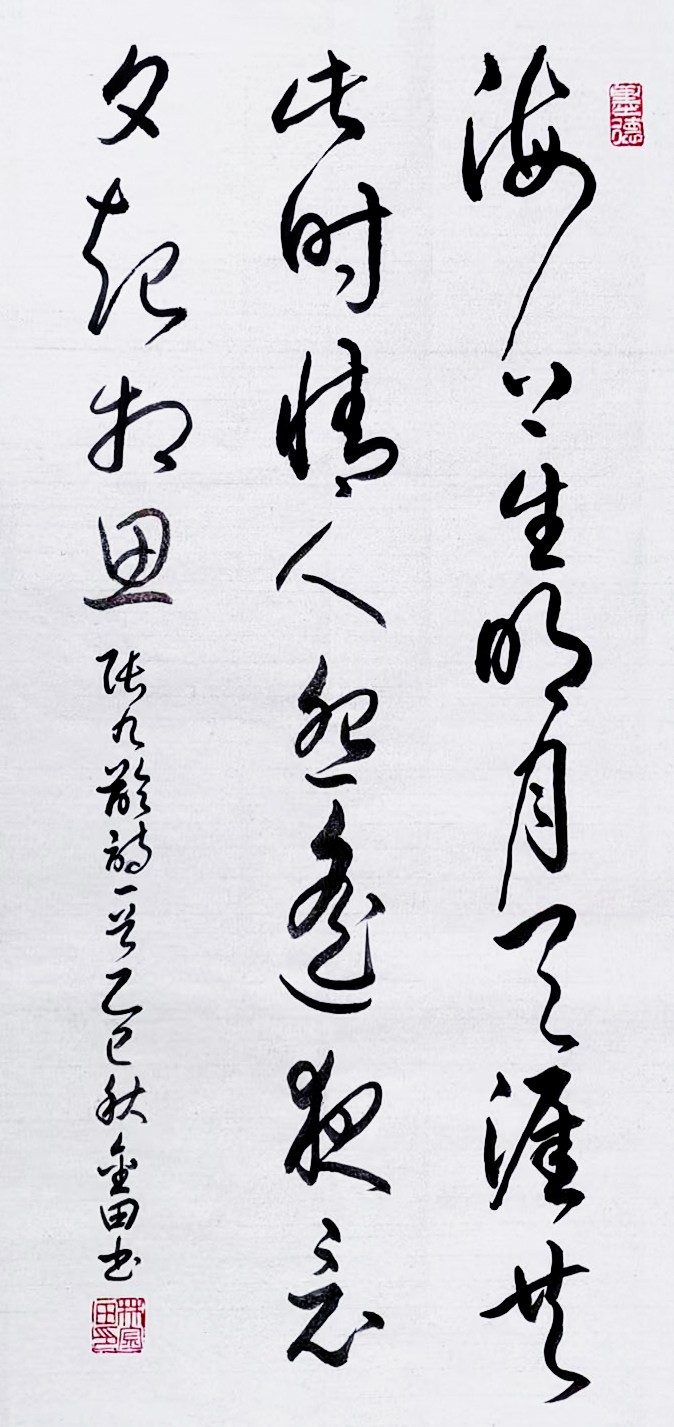 海上生明月天涯共
此时情人怨遙夜竟
夕起相思
張九齡詩一首乙巳秋金田书